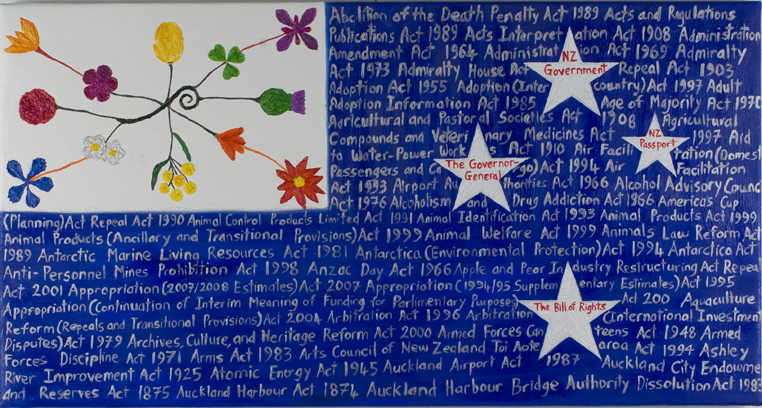 Abolition of the Death Penalty Act 1989 Acts and Regulations
Publications Act 1989 Acts Interpretation Act 1908 Administration
Amendment Act 1964 Administration Act 1969 Admiralty
NZ
Government
Act 1973 Admiralty House Act Repeal Act 1903
Adoption Act 1955 Adoption (Inter country) Act 1997 Adult
Adoption Information Act 1985 Age of Majority Act 1970
Agricultural and Pastoral Societies Act 1908 Agricultural
Compounds and Veterinary Medicines Act 1997 Aid
NZ
Passport
to Water-Power Works Act 1910 Air Facilitation (Domest
The Governor-
General
Passengers and Cargo) Act 1994 Air Facilitation
Act 1993 Airport Authorities Act 1966 Alcohol Advisory Counc
Act 1976 Alcoholism and Drug Addiction Act 1966 America's Cup
(Planning) Act Repeal Act 1990 Animal Control Products Limited Act 1991 Animal Identification Act 1993 Animal Products Act 1999
Animal Products (Ancillary and Transitional Provisions) Act 1999 Animal Welfare Act 1999 Animals Law Reform Act
1989 Antarctic Marine Living Resources Act 1981 Antarctica (Environmental Protection) Act 1994 Antarctica Act
Anti-Personnel Mines Prohibition Act 1998 Anzac Day Act 1966 Apple and Pear Industry Restructuring Act Repeal
Act 2001 Appropriation (2007/2008 Estimates) Act 2007 Appropriation (1994/95 Supplementary Estimates) Act 1995
Appropriation (Continuation of Interim Meaning of Funding for Parlimentary Purposes) Act 200 Aquaculture
The Bill of Rights
Reform (Repeals and Transitional Provisions) Act 2004 Arbitration Act 1996 Arbitration (International Investment
Disputes) Act 1979 Archives, Culture, and Heritage Reform Act 2000 Armed Forces Canteens Act 1948 Armed
Forces Discipline Act 1971 Arms Act 1983 Arts Council of New Zealand Toi Aotearoa Act 1994 Ashley
River Improvement Act 1925 Atomic Energy Act 1945 Auckland Airport Act 1987 Auckland City Endowme
and Reserves Act 1875 Auckland Harbour Act 1874 Auckland Harbour Bridge Authority Dissolution Act 1983